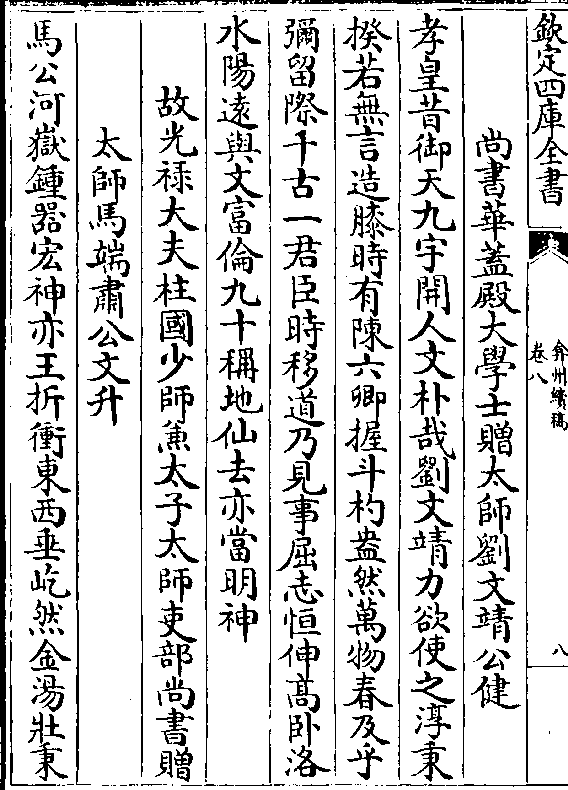 欽定四庫全書
弇州續稿
卷八
八
尚書華蓋殿大學士贈太師劉文靖公健
孝皇昔御天九宇開人文朴哉劉文靖力欲使之淳秉
揆若無言造膝時有陳六卿握斗杓盎然萬物春及乎
彌留際千古一君臣時移道乃見事屈志恒伸髙卧洛
水陽遠與文富倫九十稱地仙去亦當明神
故光禄大夫柱國少師兼太子太師吏部尚書贈
太師馬端肅公文升
馬公河嶽鍾器宏神亦王折衝東西垂屹然金湯壯秉